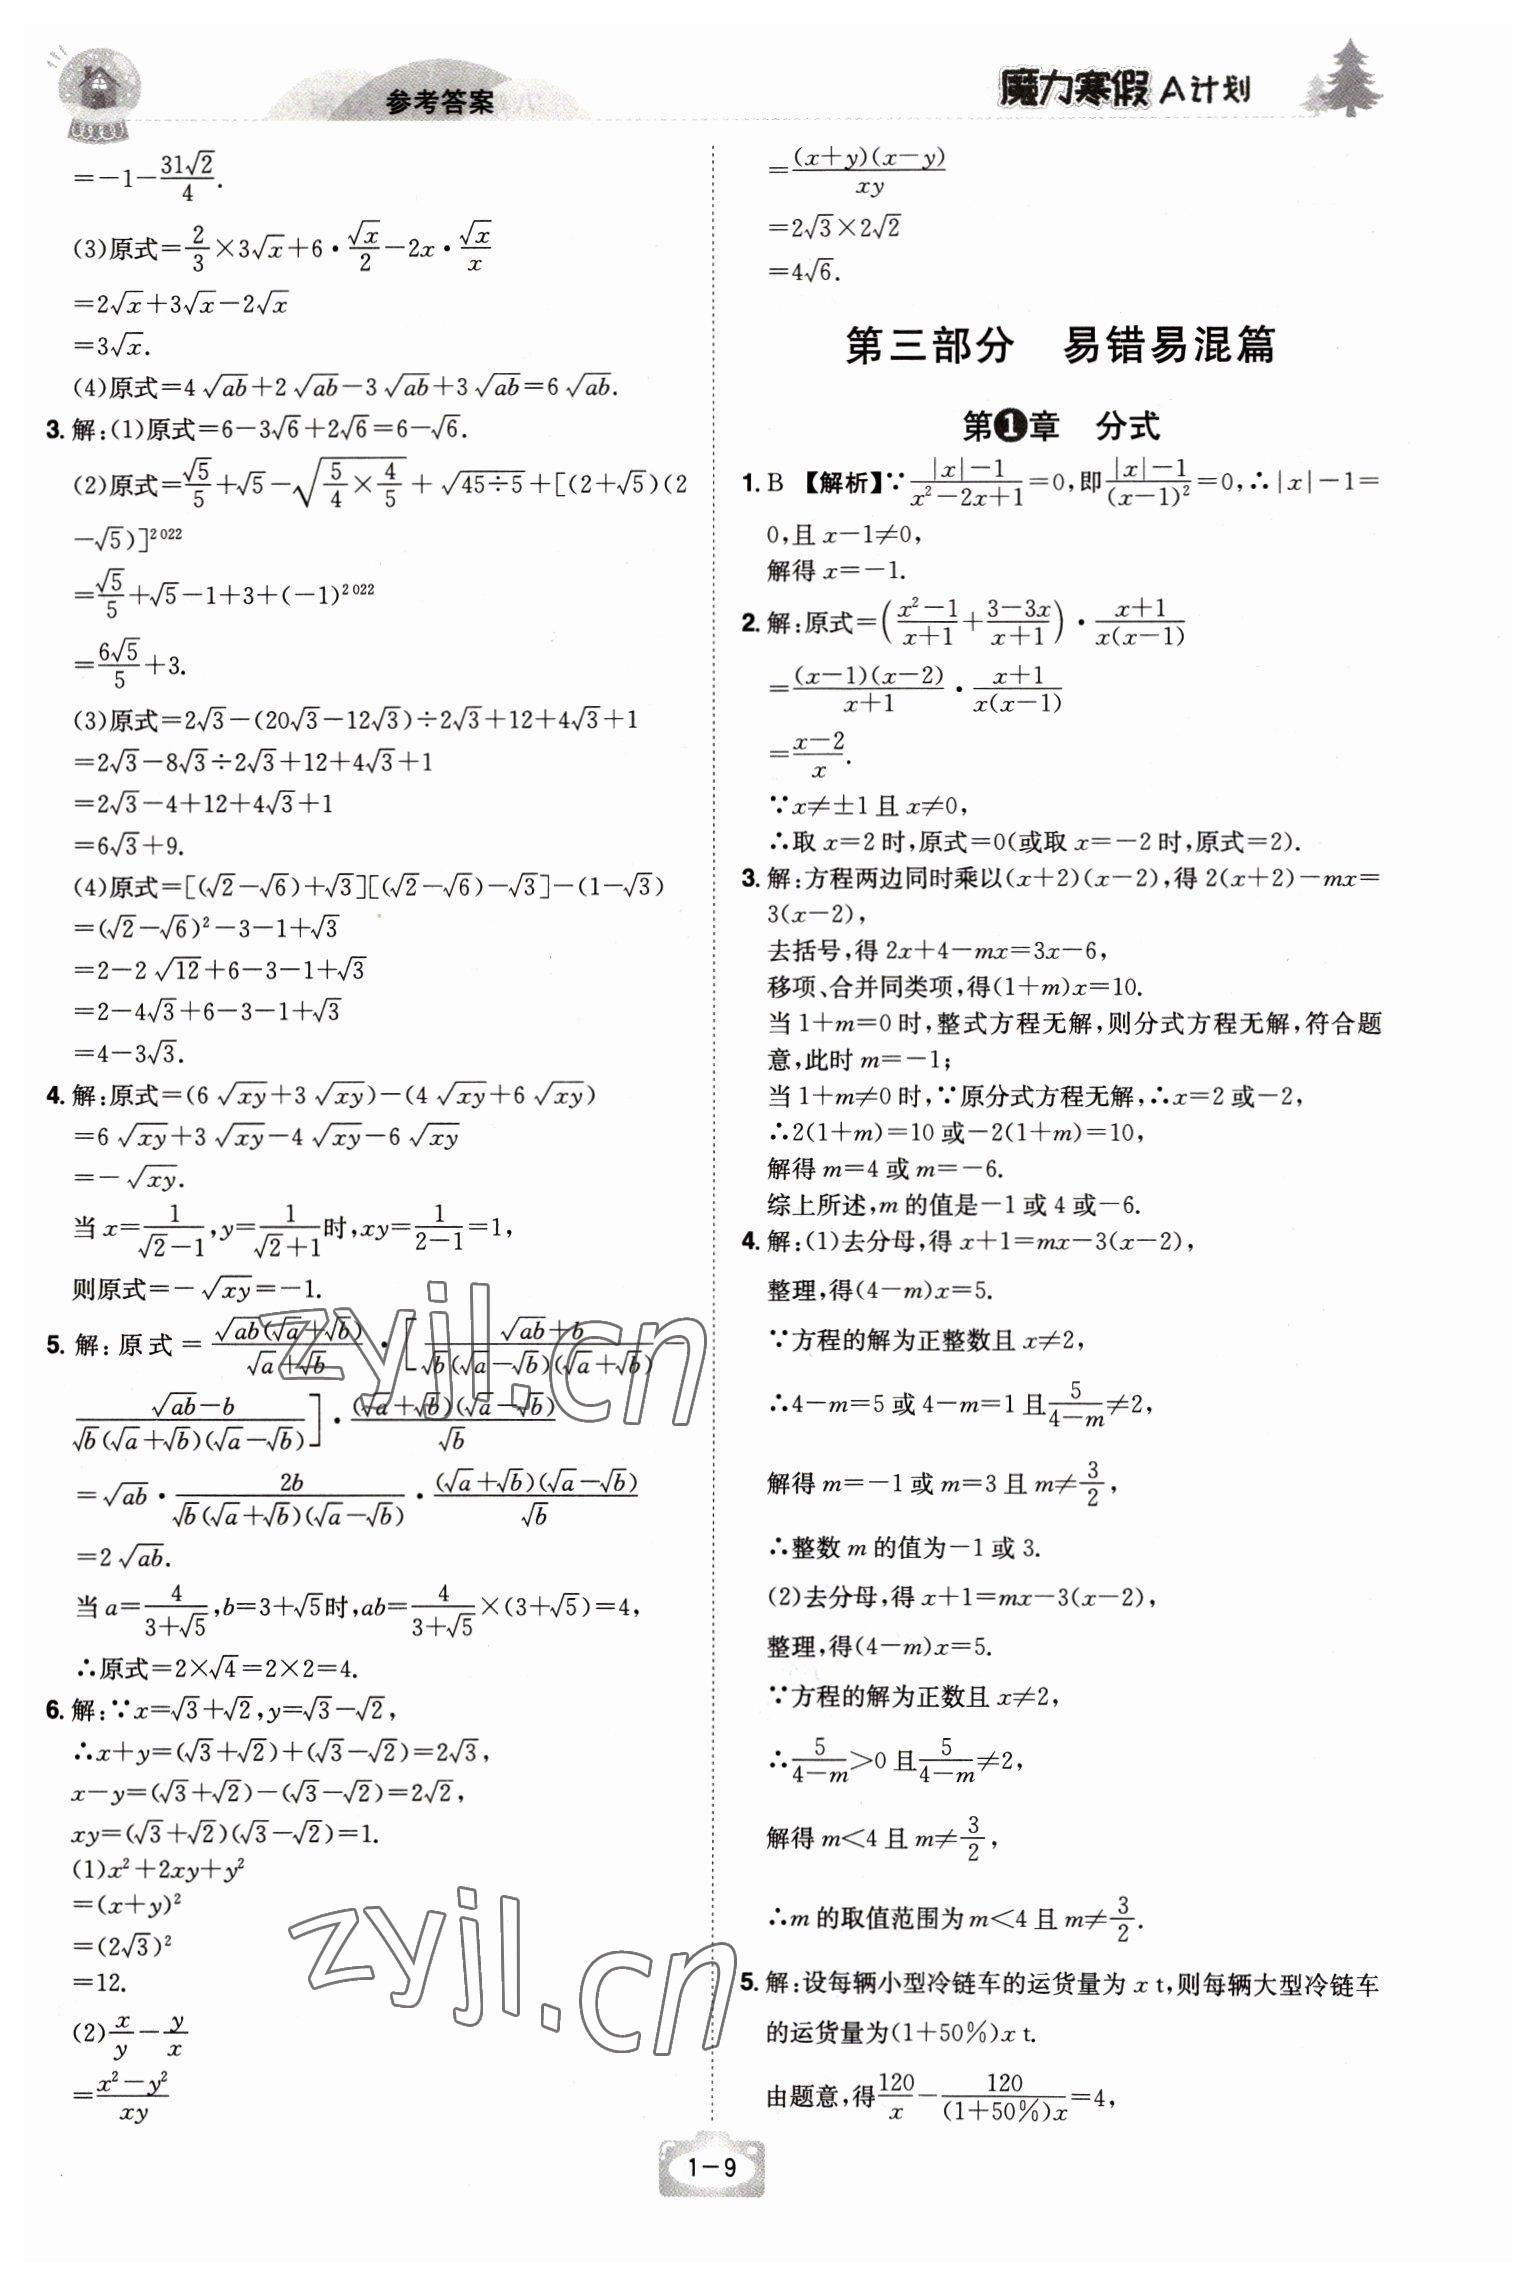 参考答案
魔力寒假 A计划
=-1-\frac{31√2}{4}.
(3)原式=\frac{2}{3}×3√x+6·\frac{√x}{2}-2x·\frac{√x}{x}
=2√x+3√x-2√x
=3√x.
(4)原式=4√ab+2√ab-3√ab+3√ab=6√ab.
3. 解:(1)原式=6-3√6+2√6=6-√6.
(2)原式=\frac{√5}{5}+√5-\sqrt{\frac{5}{4}×\frac{4}{5}}+\sqrt{45÷5}+[(2+√5)(2
-√5)]^{2022}
=\frac{√5}{5}+√5-1+3+(-1)^{2022}
=\frac{6√5}{5}+3.
(3)原式=2√3-(20√3-12√3)÷2√3+12+4√3+1
=2√3-8√3÷2√3+12+4√3+1
=2√3-4+12+4√3+1
=6√3+9.
(4)原式=[(√2-√6)+√3][(√2-√6)-√3]-(1-√3)
=(√2-√6)²-3-1+√3
=2-2√12+6-3-1+√3
=2-4√3+6-3-1+√3
=4-3√3.
4. 解:原式=(6√xy+3√xy)-(4√xy+6√xy)
=6√xy+3√xy-4√xy-6√xy
=-√xy.
当x=\frac{1}{√2-1},y=\frac{1}{√2+1}时,xy=\frac{1}{2-1}=1,
则原式=-√xy=-1.
5. 解:原式=\frac{√ab(√a+√b)}{√a+√b}·[\frac{√ab+b}{√b(√a-√b)(√a+√b)}-
\frac{√ab-b}{√b(√a+√b)(√a-√b)}]·\frac{(√a+√b)(√a-√b)}{√b}
=√ab·\frac{2b}{√b(√a+√b)(√a-√b)}·\frac{(√a+√b)(√a-√b)}{√b}
=2√ab.
当a=\frac{4}{3+√5},b=3+√5时,ab=\frac{4}{3+√5}×(3+√5)=4,
∴原式=2×√4=2×2=4.
6. 解:∵x=√3+√2,y=√3-√2,
∴x+y=(√3+√2)+(√3-√2)=2√3,
x-y=(√3+√2)-(√3-√2)=2√2,
xy=(√3+√2)(√3-√2)=1.
(1)x²+2xy+y²
=(x+y)²
=(2√3)²
=12.
(2)\frac{x}{y}-\frac{y}{x}
=\frac{x²-y²}{xy}
=\frac{(x+y)(x-y)}{xy}
=2√3×2√2
=4√6.
第三部分 易错易混篇
第1章 分式
1. B 【解析】∵\frac{|x|-1}{x²-2x+1}=0,即\frac{|x|-1}{(x-1)²}=0,∴|x|-1=
0,且x-1≠0,
解得x=-1.
2. 解:原式=(\frac{x²-1}{x+1}+\frac{3-3x}{x+1})·\frac{x+1}{x(x-1)}
=\frac{(x-1)(x-2)}{x+1}·\frac{x+1}{x(x-1)}
=\frac{x-2}{x}.
∵x≠±1且x≠0,
∴取x=2时,原式=0(或取x=-2时,原式=2).
3. 解:方程两边同时乘以(x+2)(x-2),得2(x+2)-mx=
3(x-2),
去括号,得2x+4-mx=3x-6,
移项、合并同类项,得(1+m)x=10.
当1+m=0时,整式方程无解,则分式方程无解,符合题
意,此时m=-1;
当1+m≠0时,∵原分式方程无解,∴x=2或-2,
∴2(1+m)=10或-2(1+m)=10,
解得m=4或m=-6.
综上所述,m的值是-1或4或-6.
4. 解:(1)去分母,得x+1=mx-3(x-2),
整理,得(4-m)x=5.
∵方程的解为正整数且x≠2,
∴4-m=5或4-m=1且\frac{5}{4-m}≠2,
解得m=-1或m=3且m≠\frac{3}{2},
∴整数m的值为-1或3.
(2)去分母,得x+1=mx-3(x-2),
整理,得(4-m)x=5.
∵方程的解为正数且x≠2,
∴\frac{5}{4-m}>0且\frac{5}{4-m}≠2,
解得m<4且m≠\frac{3}{2},
∴m的取值范围为m<4且m≠\frac{3}{2}.
5. 解:设每辆小型冷链车的运货量为x t,则每辆大型冷链车
的运货量为(1+50%)x t.
由题意,得\frac{120}{x}-\frac{120}{(1+50%)x}=4,
zyjl.cn
zyjl.cn
1-9